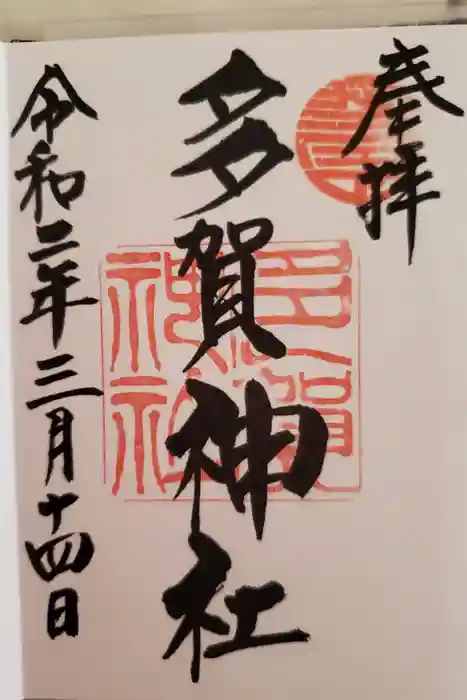 奉拝
多賀神社
多賀
神社
令和二年三月十四日